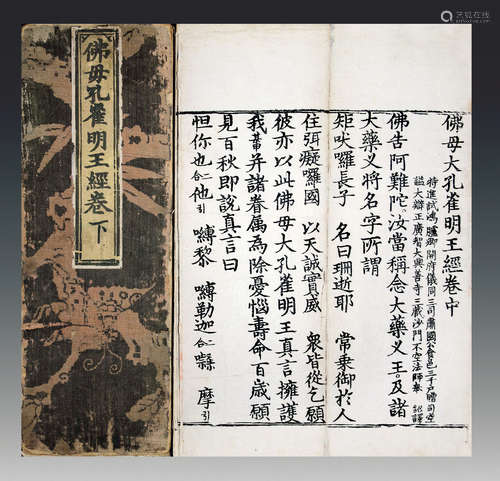 佛母孔雀明王經卷下
佛母大孔雀明王經卷中
特進試鴻臚卿開府儀同三司肅國公食邑三千戶贈司空
謚大辯正廣智大興善寺三藏沙門不空法師奉 詔譯
佛告阿難陀汝當稱念大藥义王及諸
大藥义將名字所謂
矩吠囉長子 名曰珊逝耶 常乗御於人
住弭癡囉國 以天誠實威 衆皆從乞願
彼亦以此佛母大孔雀明王真言擁護
我 并諸眷属為除憂惱壽命百歲願
見百秋即說真言曰
怛你也二合他引 嚩黎 嚩勒迦二合 摩引